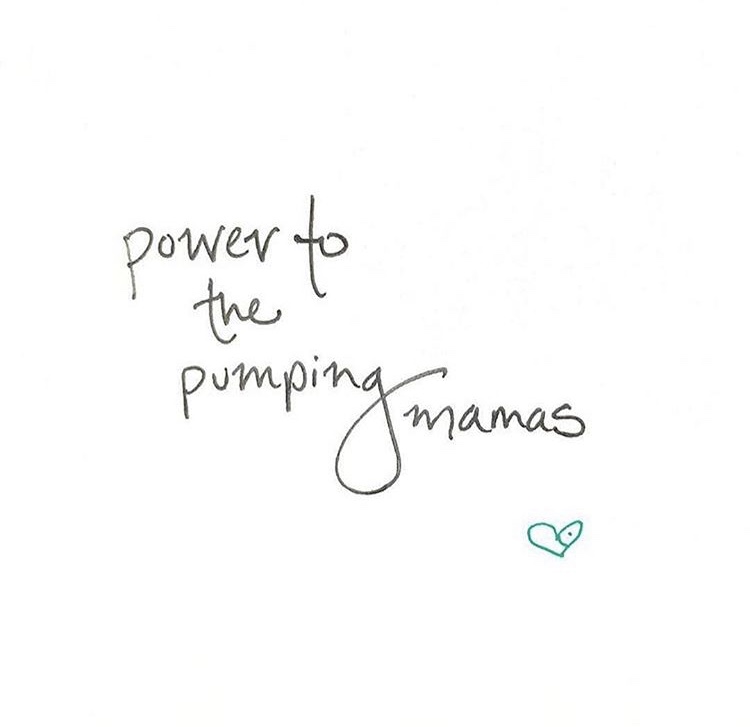 power to
the
pumping
mamas